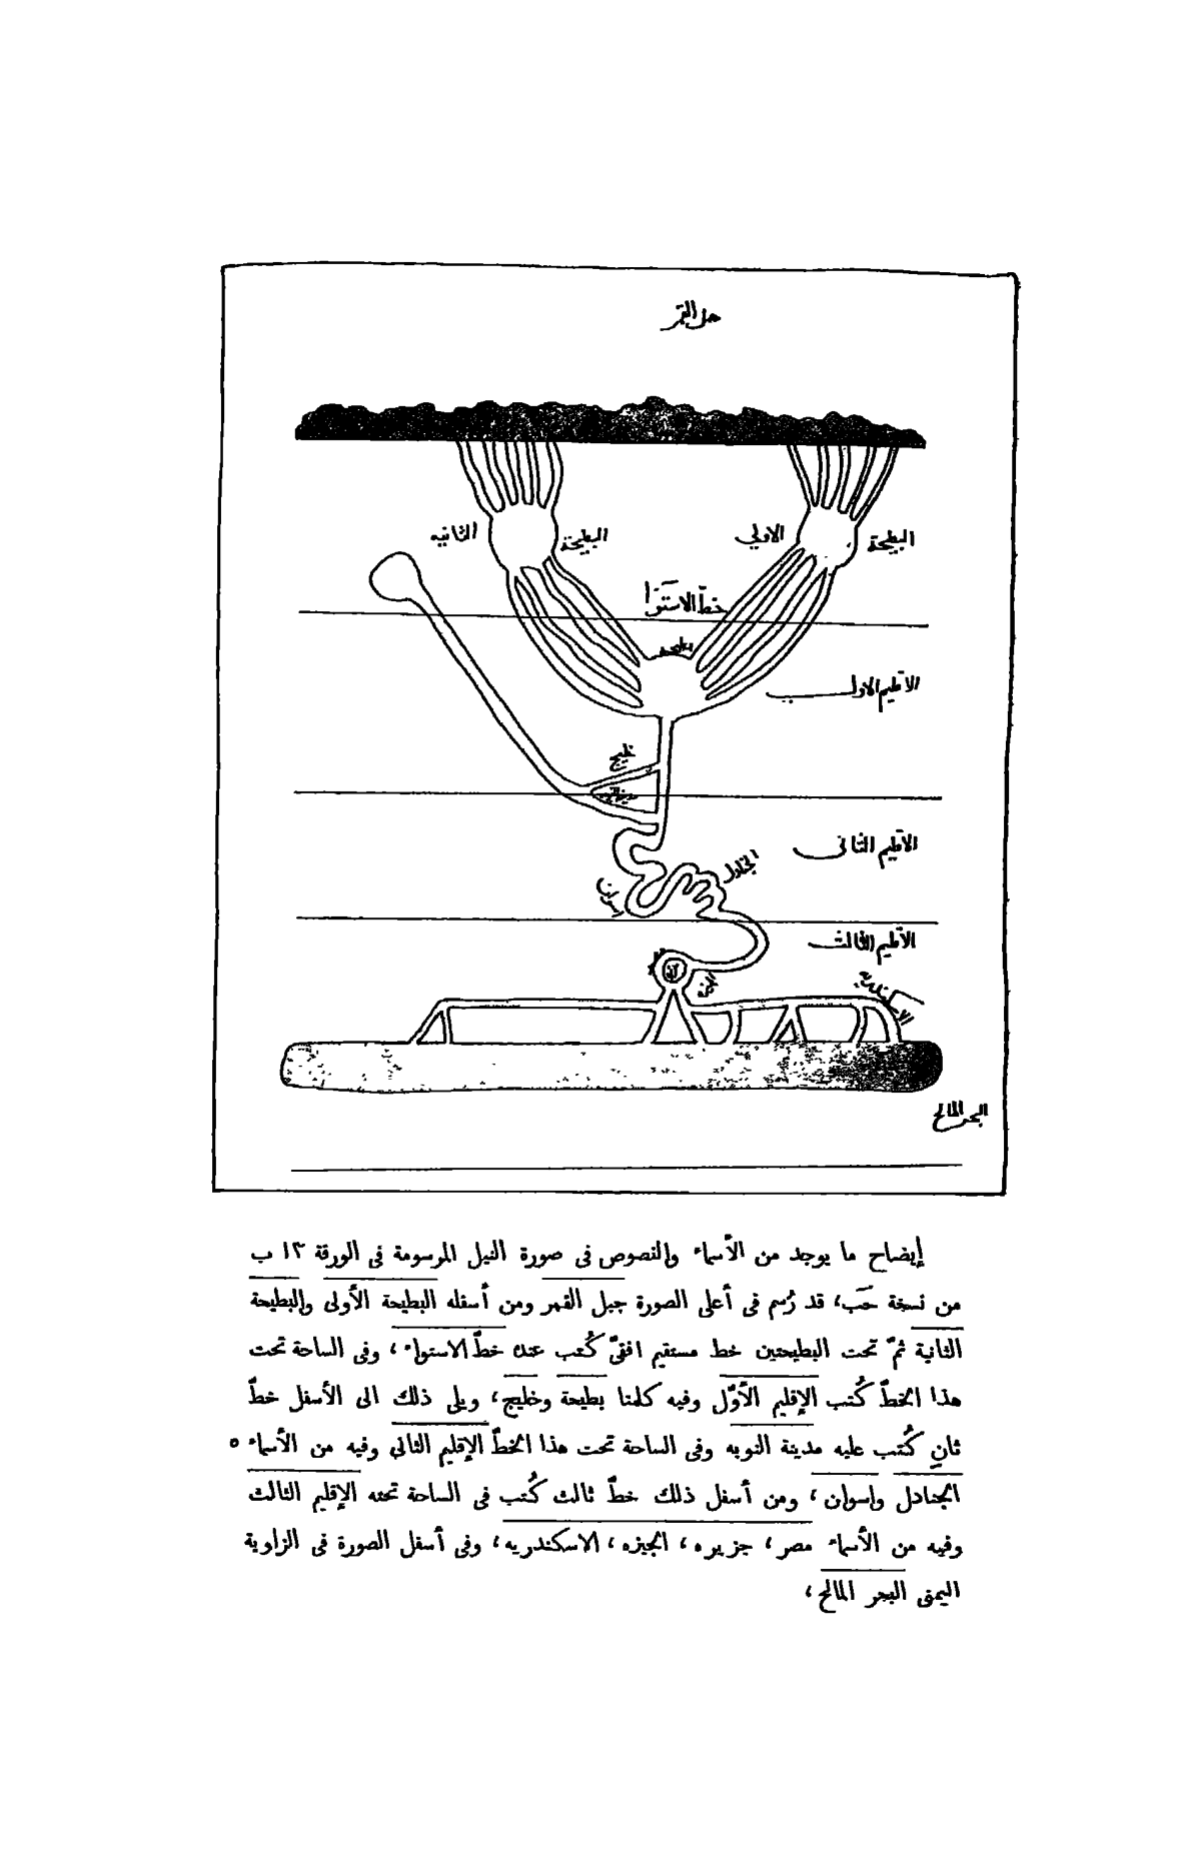 جبل القمر
البطيحة الاولي
البطيحة الثانيه
خطّ الاستوا
بطيحة
الاقليم الاول
خليج
الاقليم الثانى
الجنادل
اسوان
الاقليم الثالث
الاسكندريه
البحر المالح
إيضاح ما يوجد من الأسماء والنصوص فى صورة النيل المرسومة فى الورقة ١٣ ب
من نسخة حَب، قد رُسم فى أعلى الصورة جبل القمر ومن أسفله البطيحة الأولى والبطيحة
الثانية ثمّ تحت البطيحتين خط مستقيم افقىّ كُتب عنك خطّ الاستواء، وفى الساحة تحت
هذا الخطّ كُتب الإقليم الأوّل وفيه كلمتا بطيحة وخليج، ويلى ذلك الى الأسفل خطّ
ثانٍ كُتب عليه مدينة النوبه وفى الساحة تحت هذا الخطّ الإقليم الثانى وفيه من الأسماء ٥
الجنادل واسوان، ومن أسفل ذلك خطّ ثالث كُتب فى الساحة تحته الإقليم الثالث
وفيه من الأسماء مصر، جزيره، الجيزه، الاسكندريه، وفى أسفل الصورة فى الزاوية
اليمنى البحر المالح،